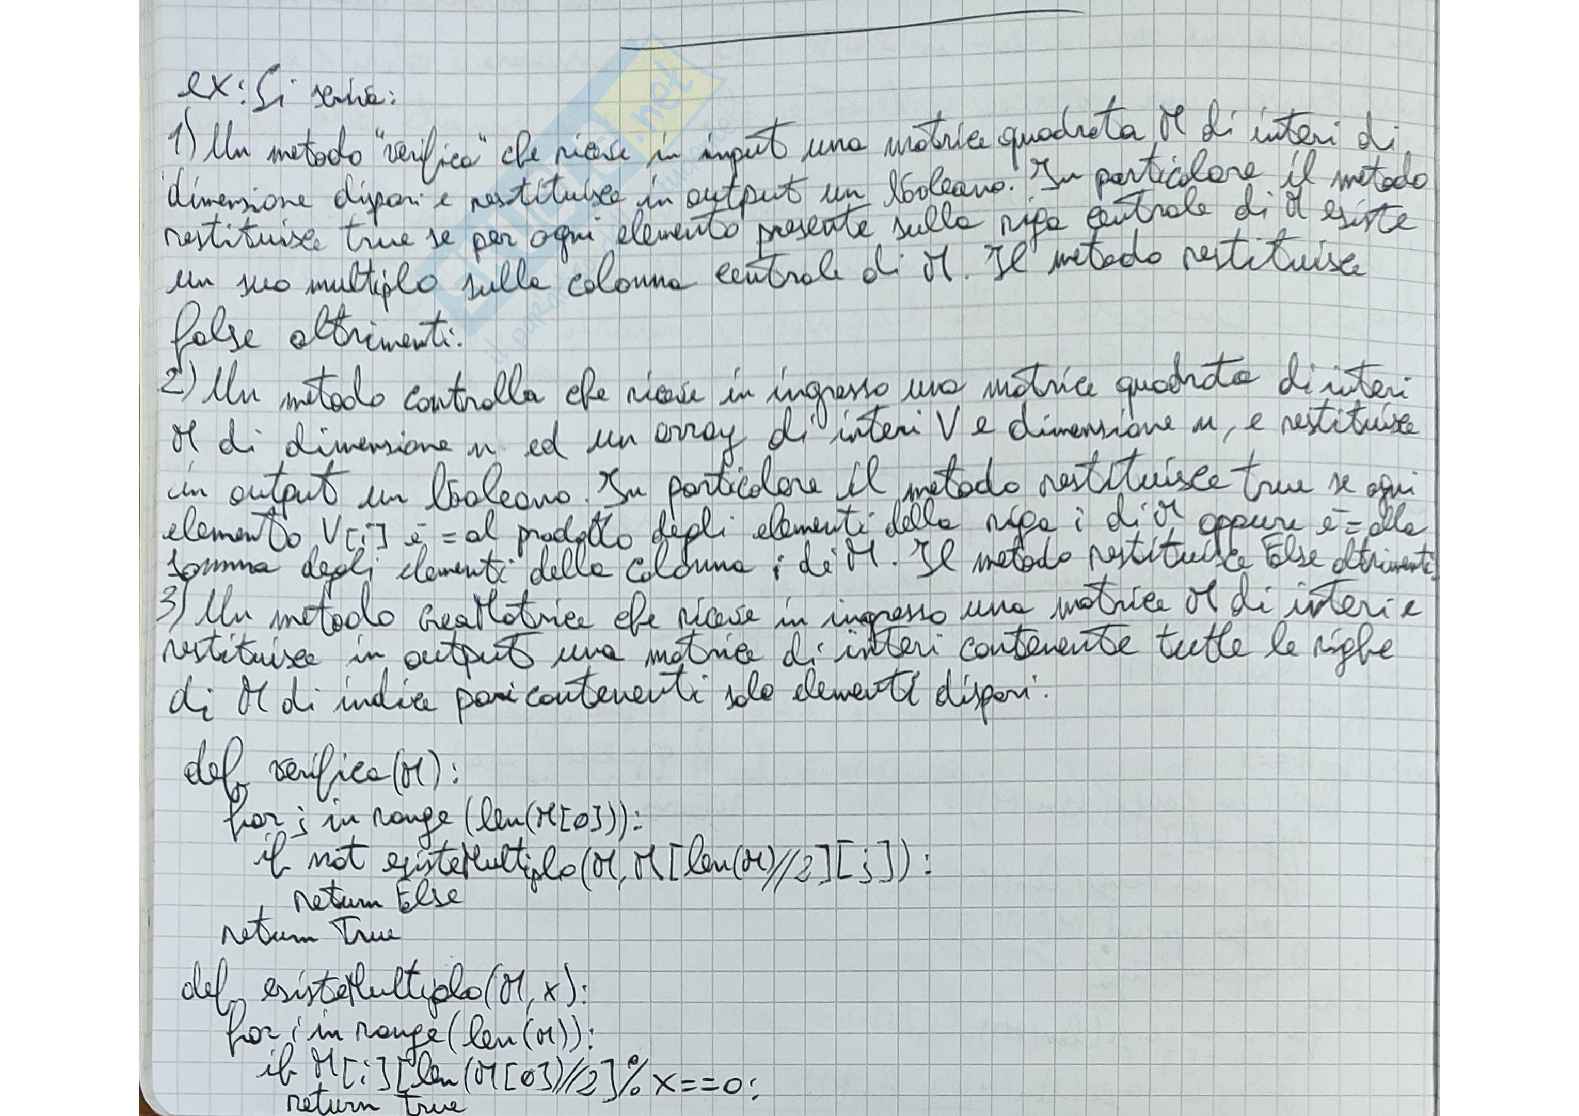 ex: Si scriva:
1) Un metodo "verifica" che riceve in input una matrice quadrata M di interi di
dimensione dispari e restituisce in output un booleano. In particolare il metodo
restituisce true se per ogni elemento presente sulla riga centrale di M esiste
un suo multiplo sulla colonna centrale di M. Il metodo restituisce
false altrimenti.
2) Un metodo controlla che riceve in ingresso una matrice quadrata di interi
M di dimensione n ed un array di interi V e dimensione n, e restituisce
in output un booleano. In particolare il metodo restituisce true se ogni
elemento V[i] è = al prodotto degli elementi della riga i di M oppure è = alla
somma degli elementi della colonna i di M. Il metodo restituisce false altrimenti
3) Un metodo creaMatrice che riceve in ingresso una matrice M di interi e
restituisce in output una matrice di interi contenente tutte le righe
di M di indice pari contenenti solo elementi dispari.
def verifica(M):
for j in range(len(M[0])):
if not esisteMultiplo(M, M[len(M)//2][j]):
return False
return True
def esisteMultiplo(M, x):
for i in range(len(M)):
if M[i][len(M[0])//2]%x==0:
return True
net